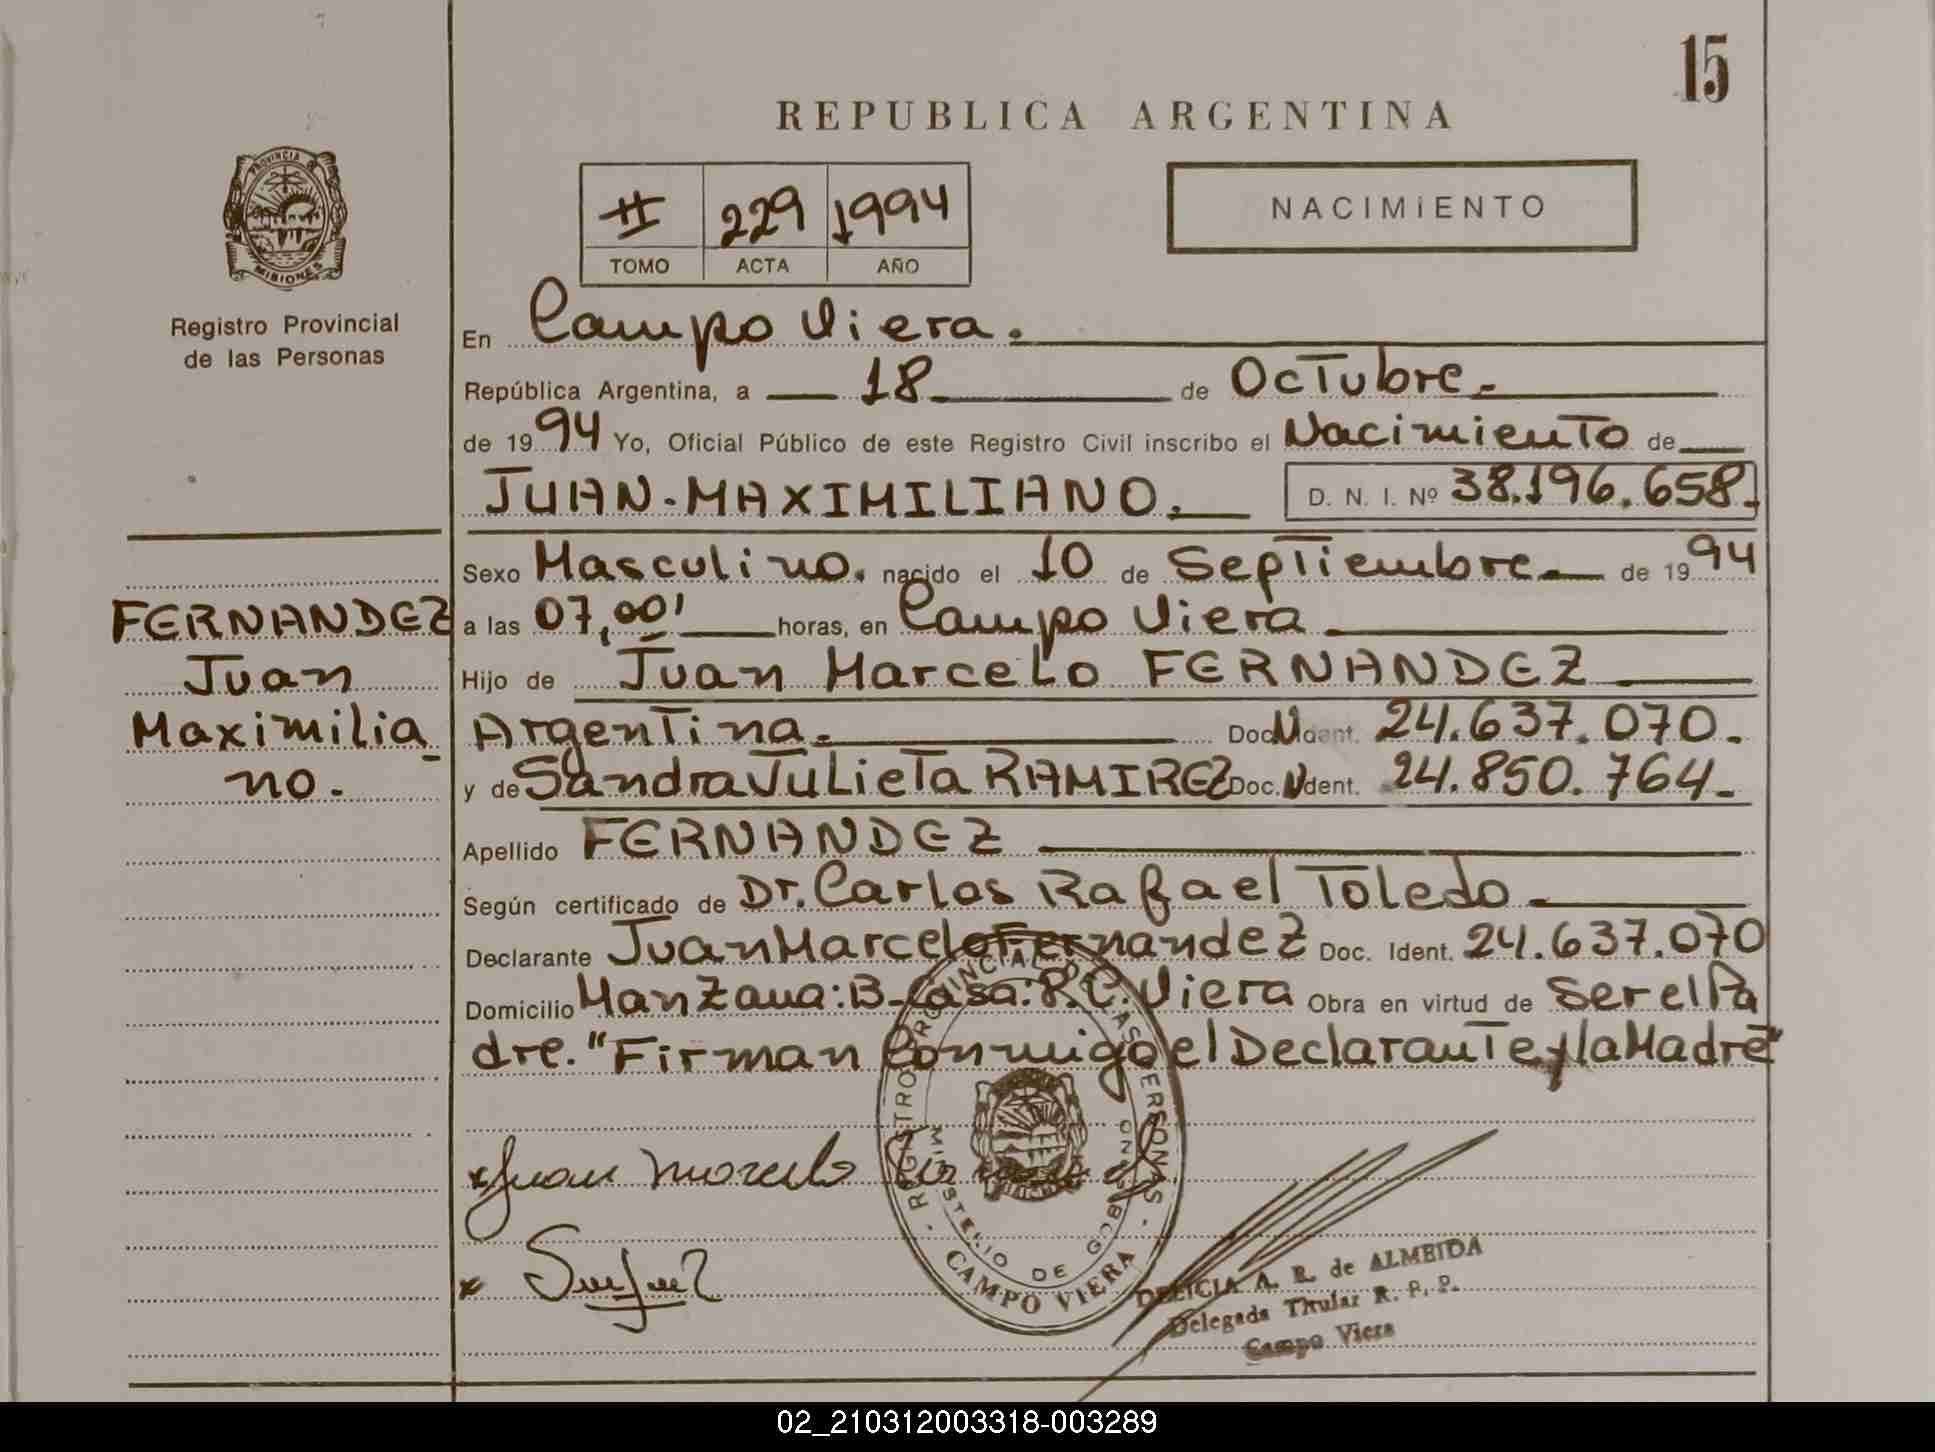 15
REPUBLICA ARGENTINA
PROVINCIA D
MISIONES
Registro Provincial
de las Personas
II 229 1994
TOMO ACTA AÑO
NACIMIENTO
En Campo Viera.
República Argentina, a 18 de Octubre.
de 1994 Yo, Oficial Público de este Registro Civil inscribo el Nacimiento de
JUAN-MAXIMILIANO. D. N. I. Nº 38.196.658.
Sexo Masculino. nacido el 10 de Septiembre. de 1994
FERNANDEZ
Juan
Maximilia-
no.
a las 07,00' horas, en Campo Viera
Hijo de Juan Marcelo FERNANDEZ
Argentina. Doc. Ident. 24.637.070.
y de Sandra Julieta RAMIREZ Doc. Ident. 24.850.764.
Apellido FERNANDEZ
Según certificado de Dr. Carlos Rafael Toledo.
Declarante Juan Marcelo Fernandez Doc. Ident. 24.637.070
Domicilio Manzana: B-Casa: C. Viera Obra en virtud de Ser el Pa
dre. "Firman Conmigo el Declarante y la Madre"
Juan Marcelo
REGISTRO PROVINCIAL DE LAS PERSONAS
MINISTERIO DE GOBIERNO
CAMPO VIERA
DELICIA A. R. de ALMEIDA
Delegada Titular R. P. P.
Campo Viera
02_210312003318-003289